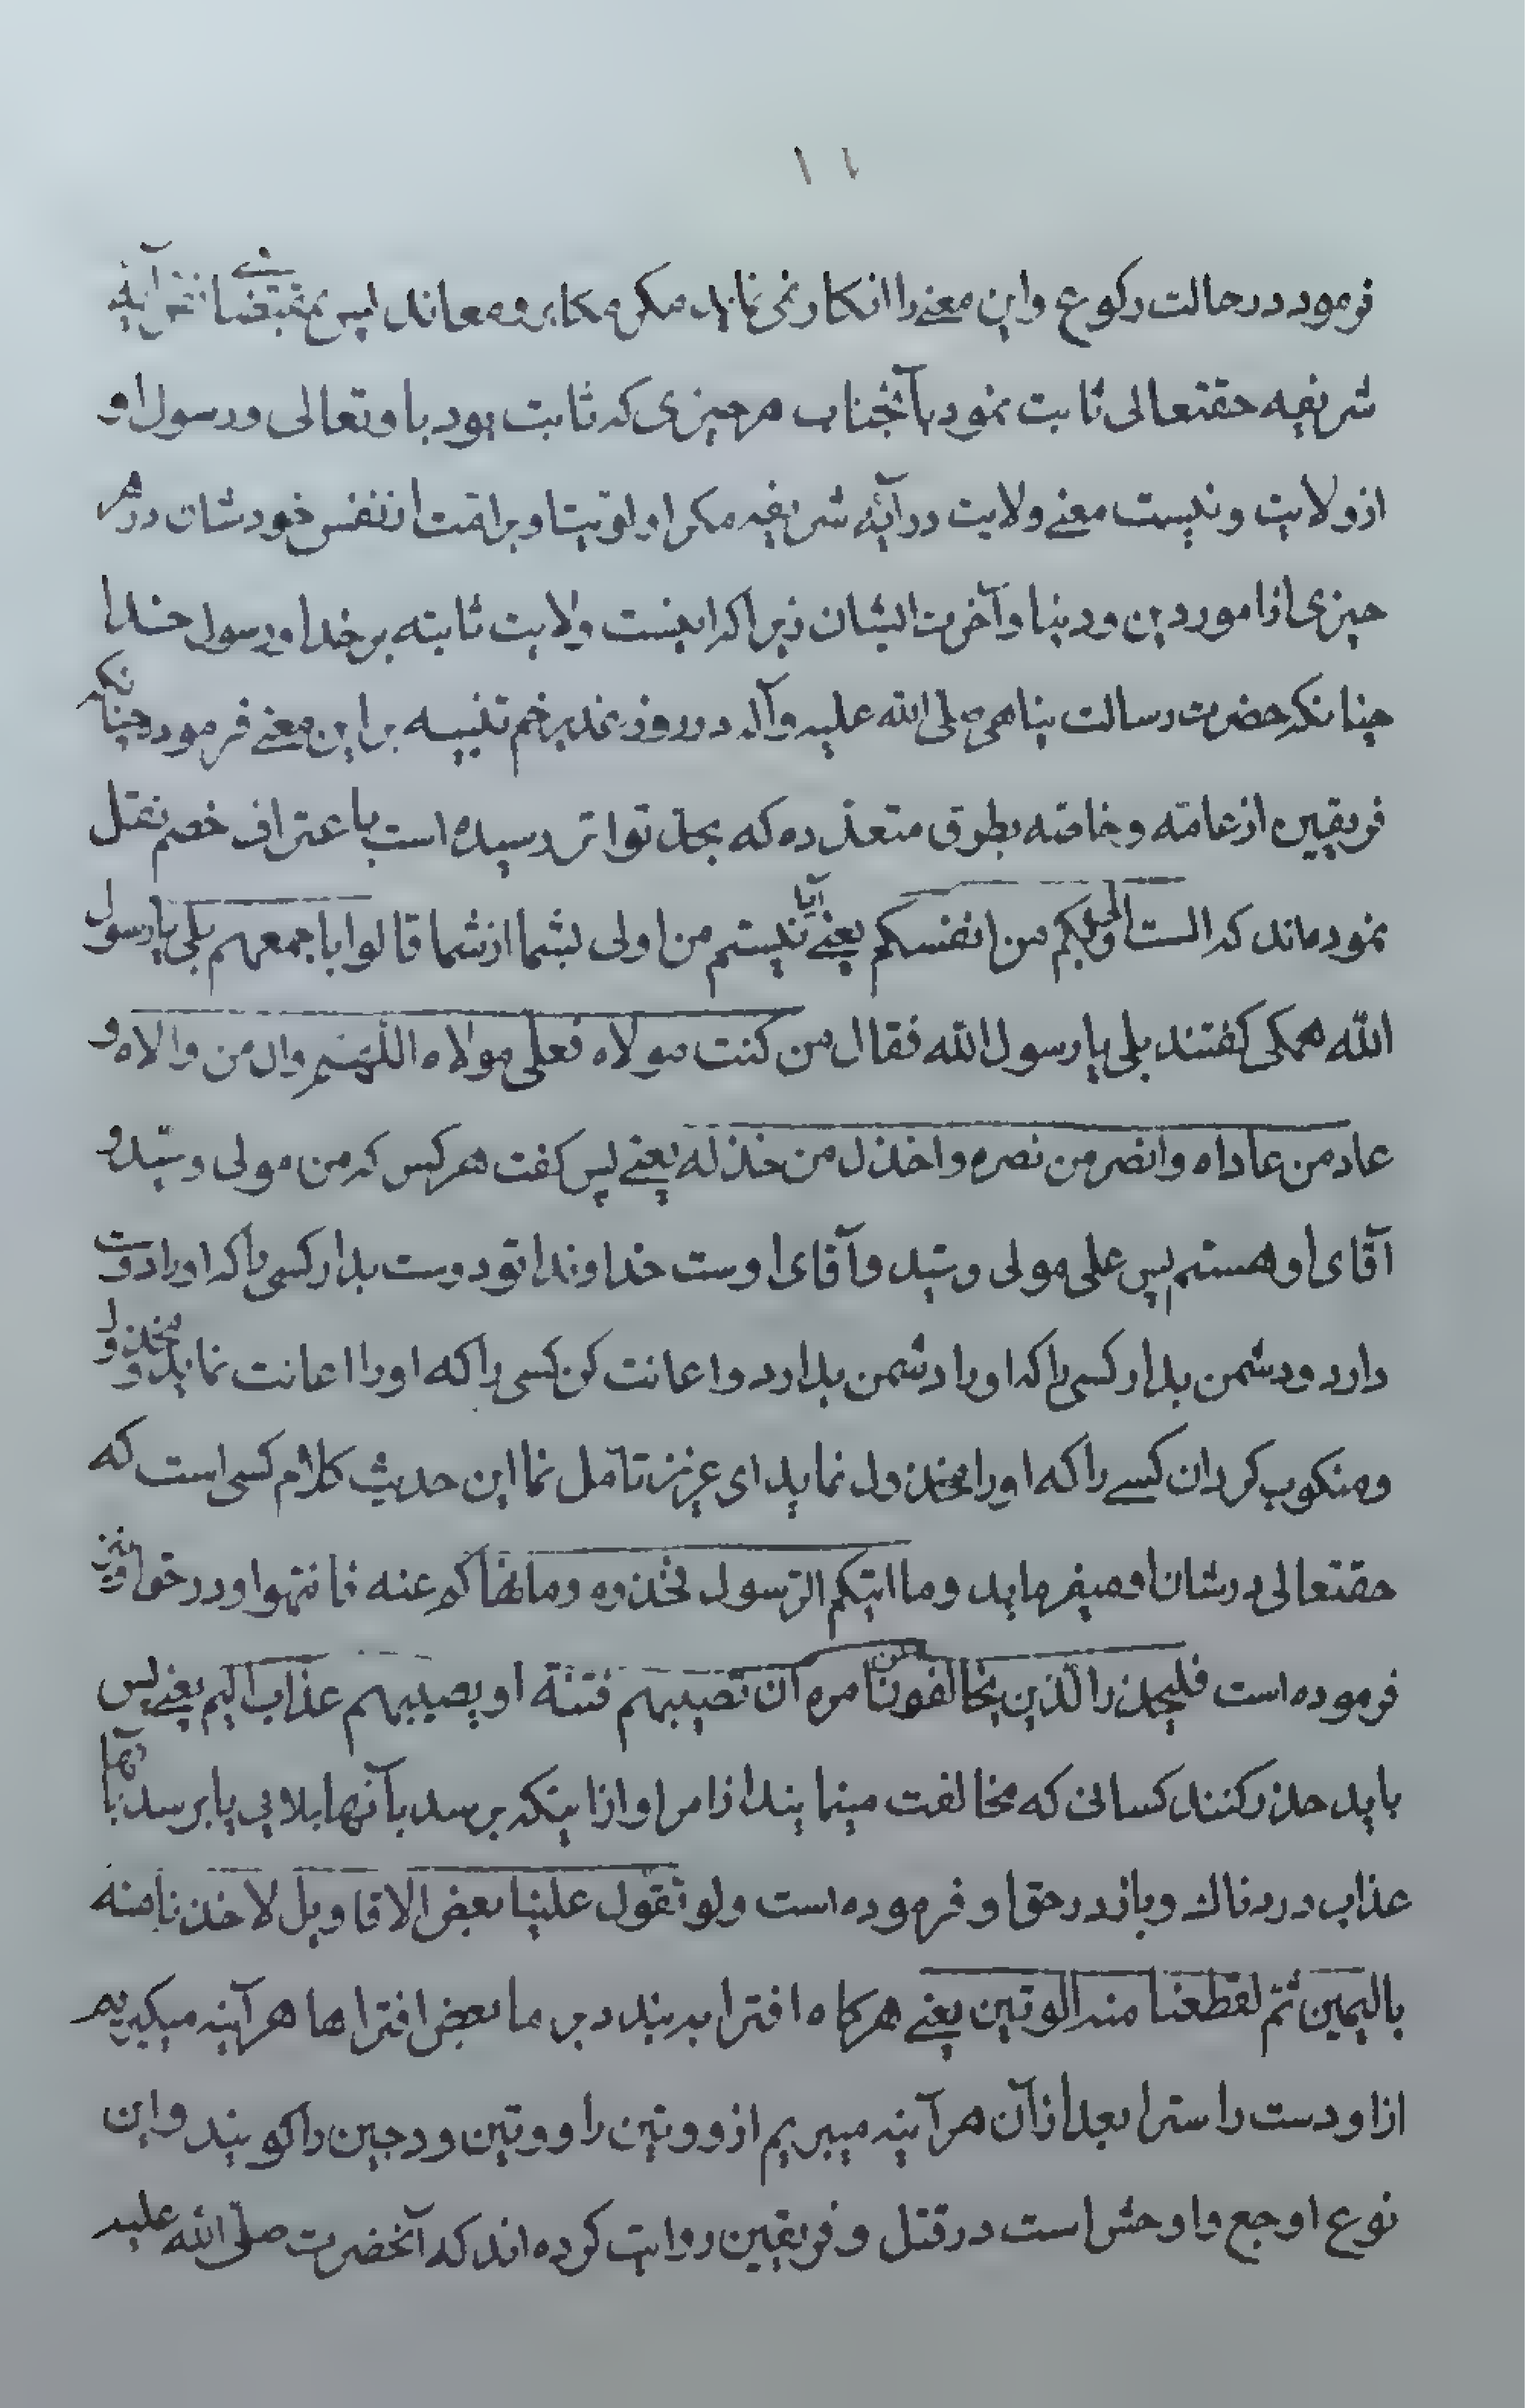 ١٤
فرمود در حالت رکوع و این معنی را انکار نمی‌نماید مکر مکابر و معاند پس بمقتضای نص آیه
شریفه حقتعالی ثابت نمود بآنجناب هر چیزی که ثابت بود باو تعالی و رسول او
از ولایت و نیست معنی ولایت در آیه شریفه مکر اولویت از نفس خودشان در هر
چیزی از امور دین و دنیا و آخرت ایشان زیرا که اینست ولایت ثابته بر خدا و رسول خدا
چنانکه حضرت رسالت پناهی صلی الله علیه و آله در روز غدیر خم تنبیه بر این معنی فرمود چنانکه
فریقین از عامّه و خاصّه بطرق متعدّده که بحدّ تواتر رسیده است باعتراف خصم نقل
نموده‌اند که الست اولی بکم من انفسکم یعنی آیا نیستم من اولی بشما از شما قالوا باجمعهم بلی یا رسول
الله همکی کفتند بلی یا رسول الله فقال من کنت مولاه فعلی مولاه اللّهمّ وال من والاه و
عاد من عاداه و انصر من نصره و اخذل من خذله یعنی پس کفت هر کس که من مولی و سیّد و
آقای او هستم پس علی مولی و سیّد و آقای اوست خداوندا تو دوست بدار کسی را که او را دوست
دارد و دشمن بدار کسی را که او را دشمن بدارد و اعانت کن کسی را که او را اعانت نماید و مخذول
و منکوب کردان کسی را که او را مخذول نماید ای عزیز تامل نما این حدیث کلام کسی است که
حقتعالی در شان او میفرماید و ما اتیکم الرّسول فخذوه و ما نهاکم عنه فانتهوا و در حق او نیز
فرموده است فلیحذر الّذین یخالفون عن امره ان تصیبهم فتنة او یصیبهم عذاب الیم یعنی پس
باید حذر کنند کسانی که مخالفت مینمایند از امر او از اینکه برسد بآنها بلایی یا برسد بآنها
عذاب دردناک و باز در حق او فرموده است و لو تقول علینا بعض الاقاویل لاخذنا منه
بالیمین ثمّ لقطعنا منه الوتین یعنی هرکاه افترا ببندد بر ما بعض افتراها هر آینه میکیریم
از او دست راست را بعد از آن هر آینه میبریم از و وتین را و وتین و دجین را کویند و این
نوع اوجع و اوحش است در قتل و فریقین روایت کرده‌اند که آنحضرت صلّی الله علیه